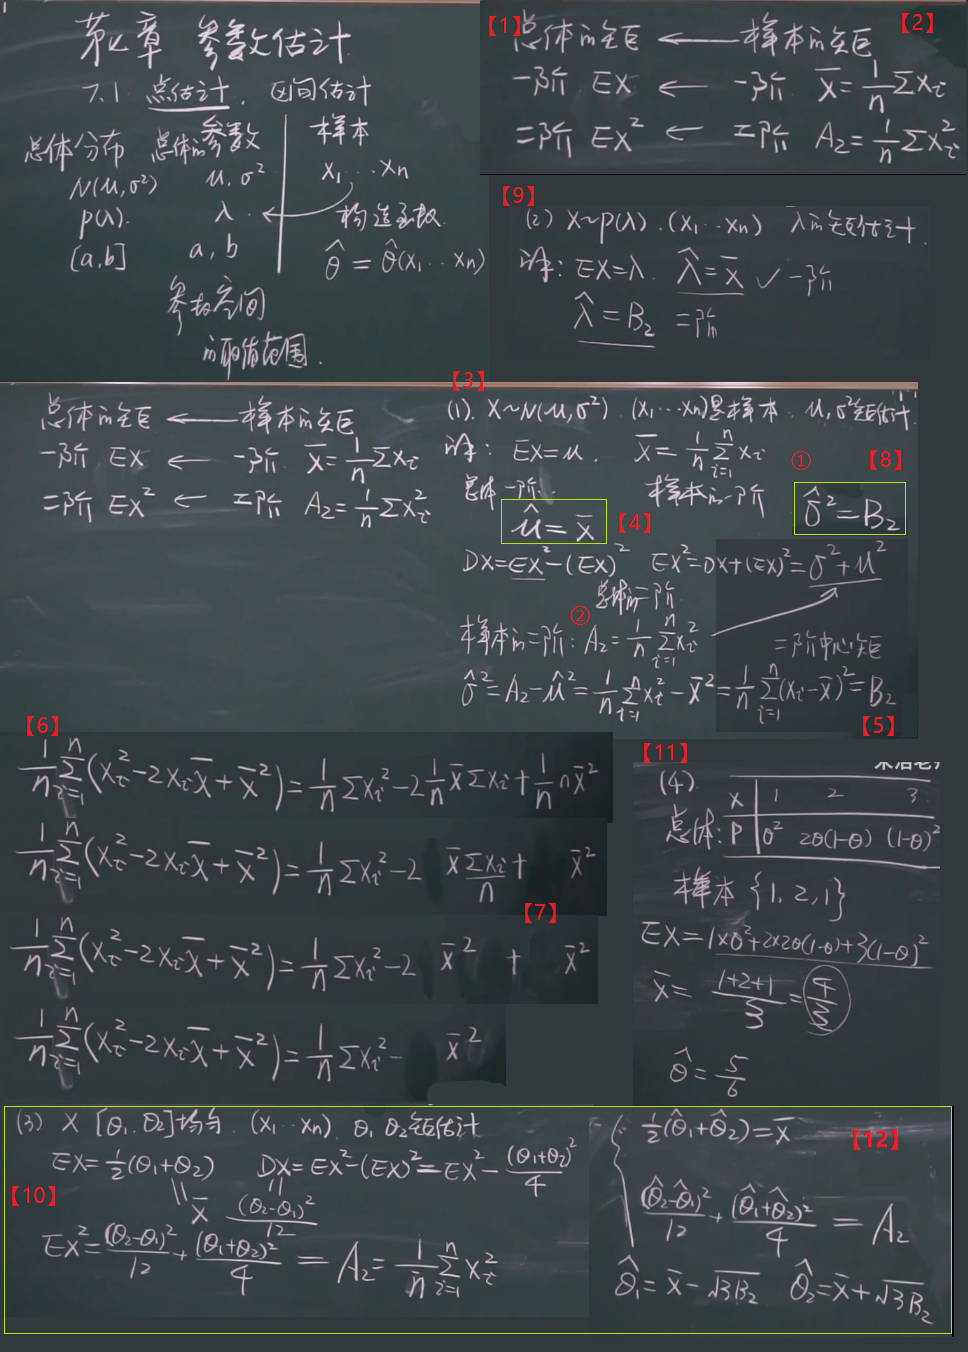 第七章 参数估计
7.1 点估计、区间估计
总体分布 总体的参数 样本
N(μ,σ²) μ,σ² x₁…xₙ
p(λ). λ 构造函数.
[a,b] a,b θ̂ = θ̂(x₁…xₙ)
参数空间
的取值范围.
【1】 【2】
总体的矩 ← 样本的矩
一阶 EX ← 一阶 x̄=1/n Σxᵢ
二阶 EX² ← 二阶 A₂=1/n Σxᵢ²
【9】
(2) X~p(λ).(x₁…xₙ) λ的矩估计.
解: EX=λ. λ̂=x̄ ✓一阶
λ̂=B₂ 二阶
【3】
总体的矩 ← 样本的矩
一阶 EX ← 一阶 x̄=1/n Σxᵢ
二阶 EX² ← 二阶 A₂=1/n Σxᵢ²
(1). X~N(μ,σ²).(x₁…xₙ)是样本. μ,σ²矩估计.
解: EX=μ. x̄=1/n Σᵢ₌₁ⁿ xᵢ ① 【8】
总体一阶. 样本的一阶 σ̂²=B₂
μ̂=x̄ 【4】
DX=EX²-(EX)² EX²=DX+(EX)²=σ²+μ²
总体的二阶
样本的二阶: ② A₂=1/n Σᵢ₌₁ⁿ xᵢ² 二阶中心矩
σ̂²=A₂-μ̂²=1/n Σᵢ₌₁ⁿ xᵢ²-x̄²=1/n Σᵢ₌₁ⁿ(xᵢ-x̄)²=B₂
【5】
【6】
1/n Σᵢ₌₁ⁿ(xᵢ²-2xᵢx̄+x̄²)=1/n Σxᵢ²-2 1/n x̄Σxᵢ+1/n nx̄²
1/n Σᵢ₌₁ⁿ(xᵢ²-2xᵢx̄+x̄²)=1/n Σxᵢ²-2 x̄ Σxᵢ/n + x̄²
【7】
1/n Σᵢ₌₁ⁿ(xᵢ²-2xᵢx̄+x̄²)=1/n Σxᵢ²-2 x̄² + x̄²
1/n Σᵢ₌₁ⁿ(xᵢ²-2xᵢx̄+x̄²)=1/n Σxᵢ²- x̄²
【11】
(4).
X 1 2 3
总体: P θ² 2θ(1-θ) (1-θ)²
样本 {1,2,1}
EX=1×θ²+2×2θ(1-θ)+3(1-θ)²
x̄= (1+2+1)/3=4/3
θ̂=5/6
(3) X [θ₁,θ₂]均匀.(x₁…xₙ). θ₁ θ₂矩估计
EX=1/2(θ₁+θ₂) DX=EX²-(EX)²=EX²-(θ₁+θ₂)²/4
【10】 = x̄ = (θ₂-θ₁)²/12
EX²=(θ₂-θ₁)²/12+(θ₁+θ₂)²/4 = A₂=1/n Σᵢ₌₁ⁿ xᵢ²
1/2(θ̂₁+θ̂₂)=x̄ 【12】
(θ̂₂-θ̂₁)²/12+(θ̂₁+θ̂₂)²/4 = A₂
θ̂₁=x̄-√3B₂ θ̂₂=x̄+√3B₂